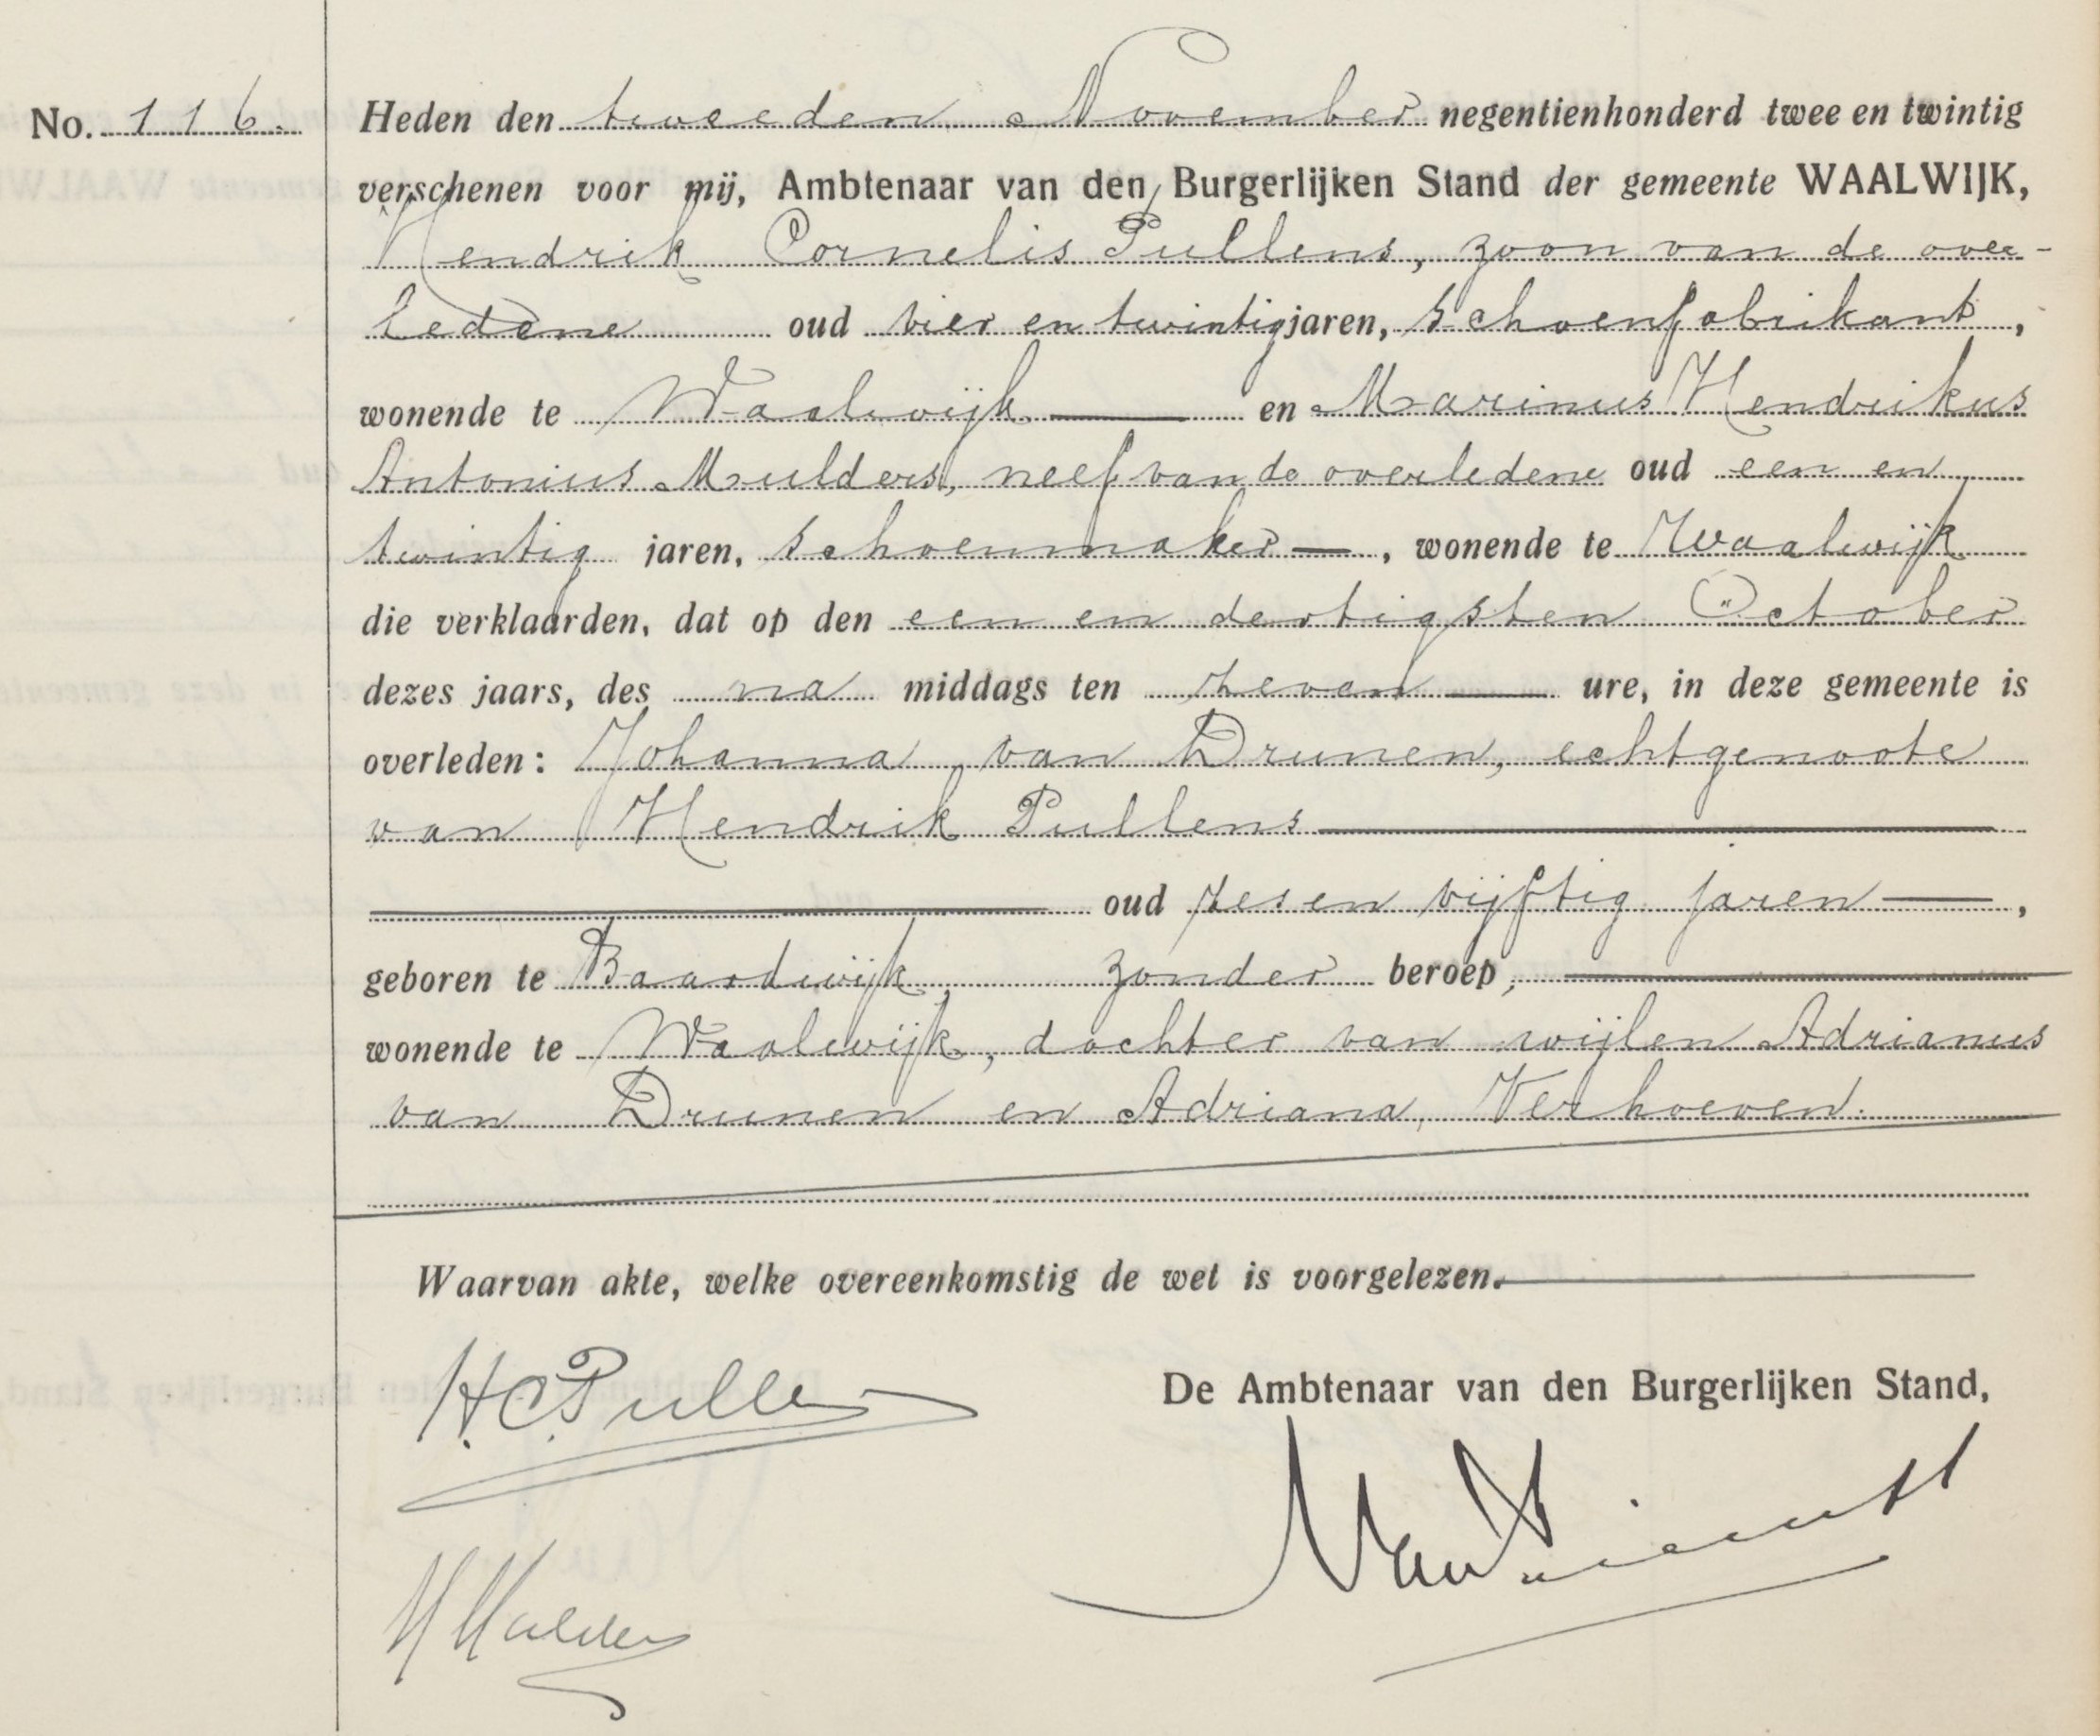 No. 116.
Heden den tweeden November negentienhonderd twee en twintig
verschenen voor mij, Ambtenaar van den Burgerlijken Stand der gemeente WAALWIJK,
Hendrik Cornelis Pullens, zoon van de over-
ledene oud vier en twintig jaren, schoenfabrikant,
wonende te Waalwijk en Marinus Hendrikus
Antonius Mulders, neef van de overledene oud een en
twintig jaren, schoenmaker, wonende te Waalwijk
die verklaarden, dat op den een en dertigsten October
dezes jaars, des na middags ten zeven ure, in deze gemeente is
overleden: Johanna van Drunen, echtgenoote
van Hendrik Pullens
oud zes en vijftig jaren,
geboren te Baardwijk, zonder beroep,
wonende te Waalwijk, dochter van wijlen Adrianus
van Drunen en Adriana Verhoeven.
Waarvan akte, welke overeenkomstig de wet is voorgelezen.
H.C. Pullens
De Ambtenaar van den Burgerlijken Stand,
M Mulders